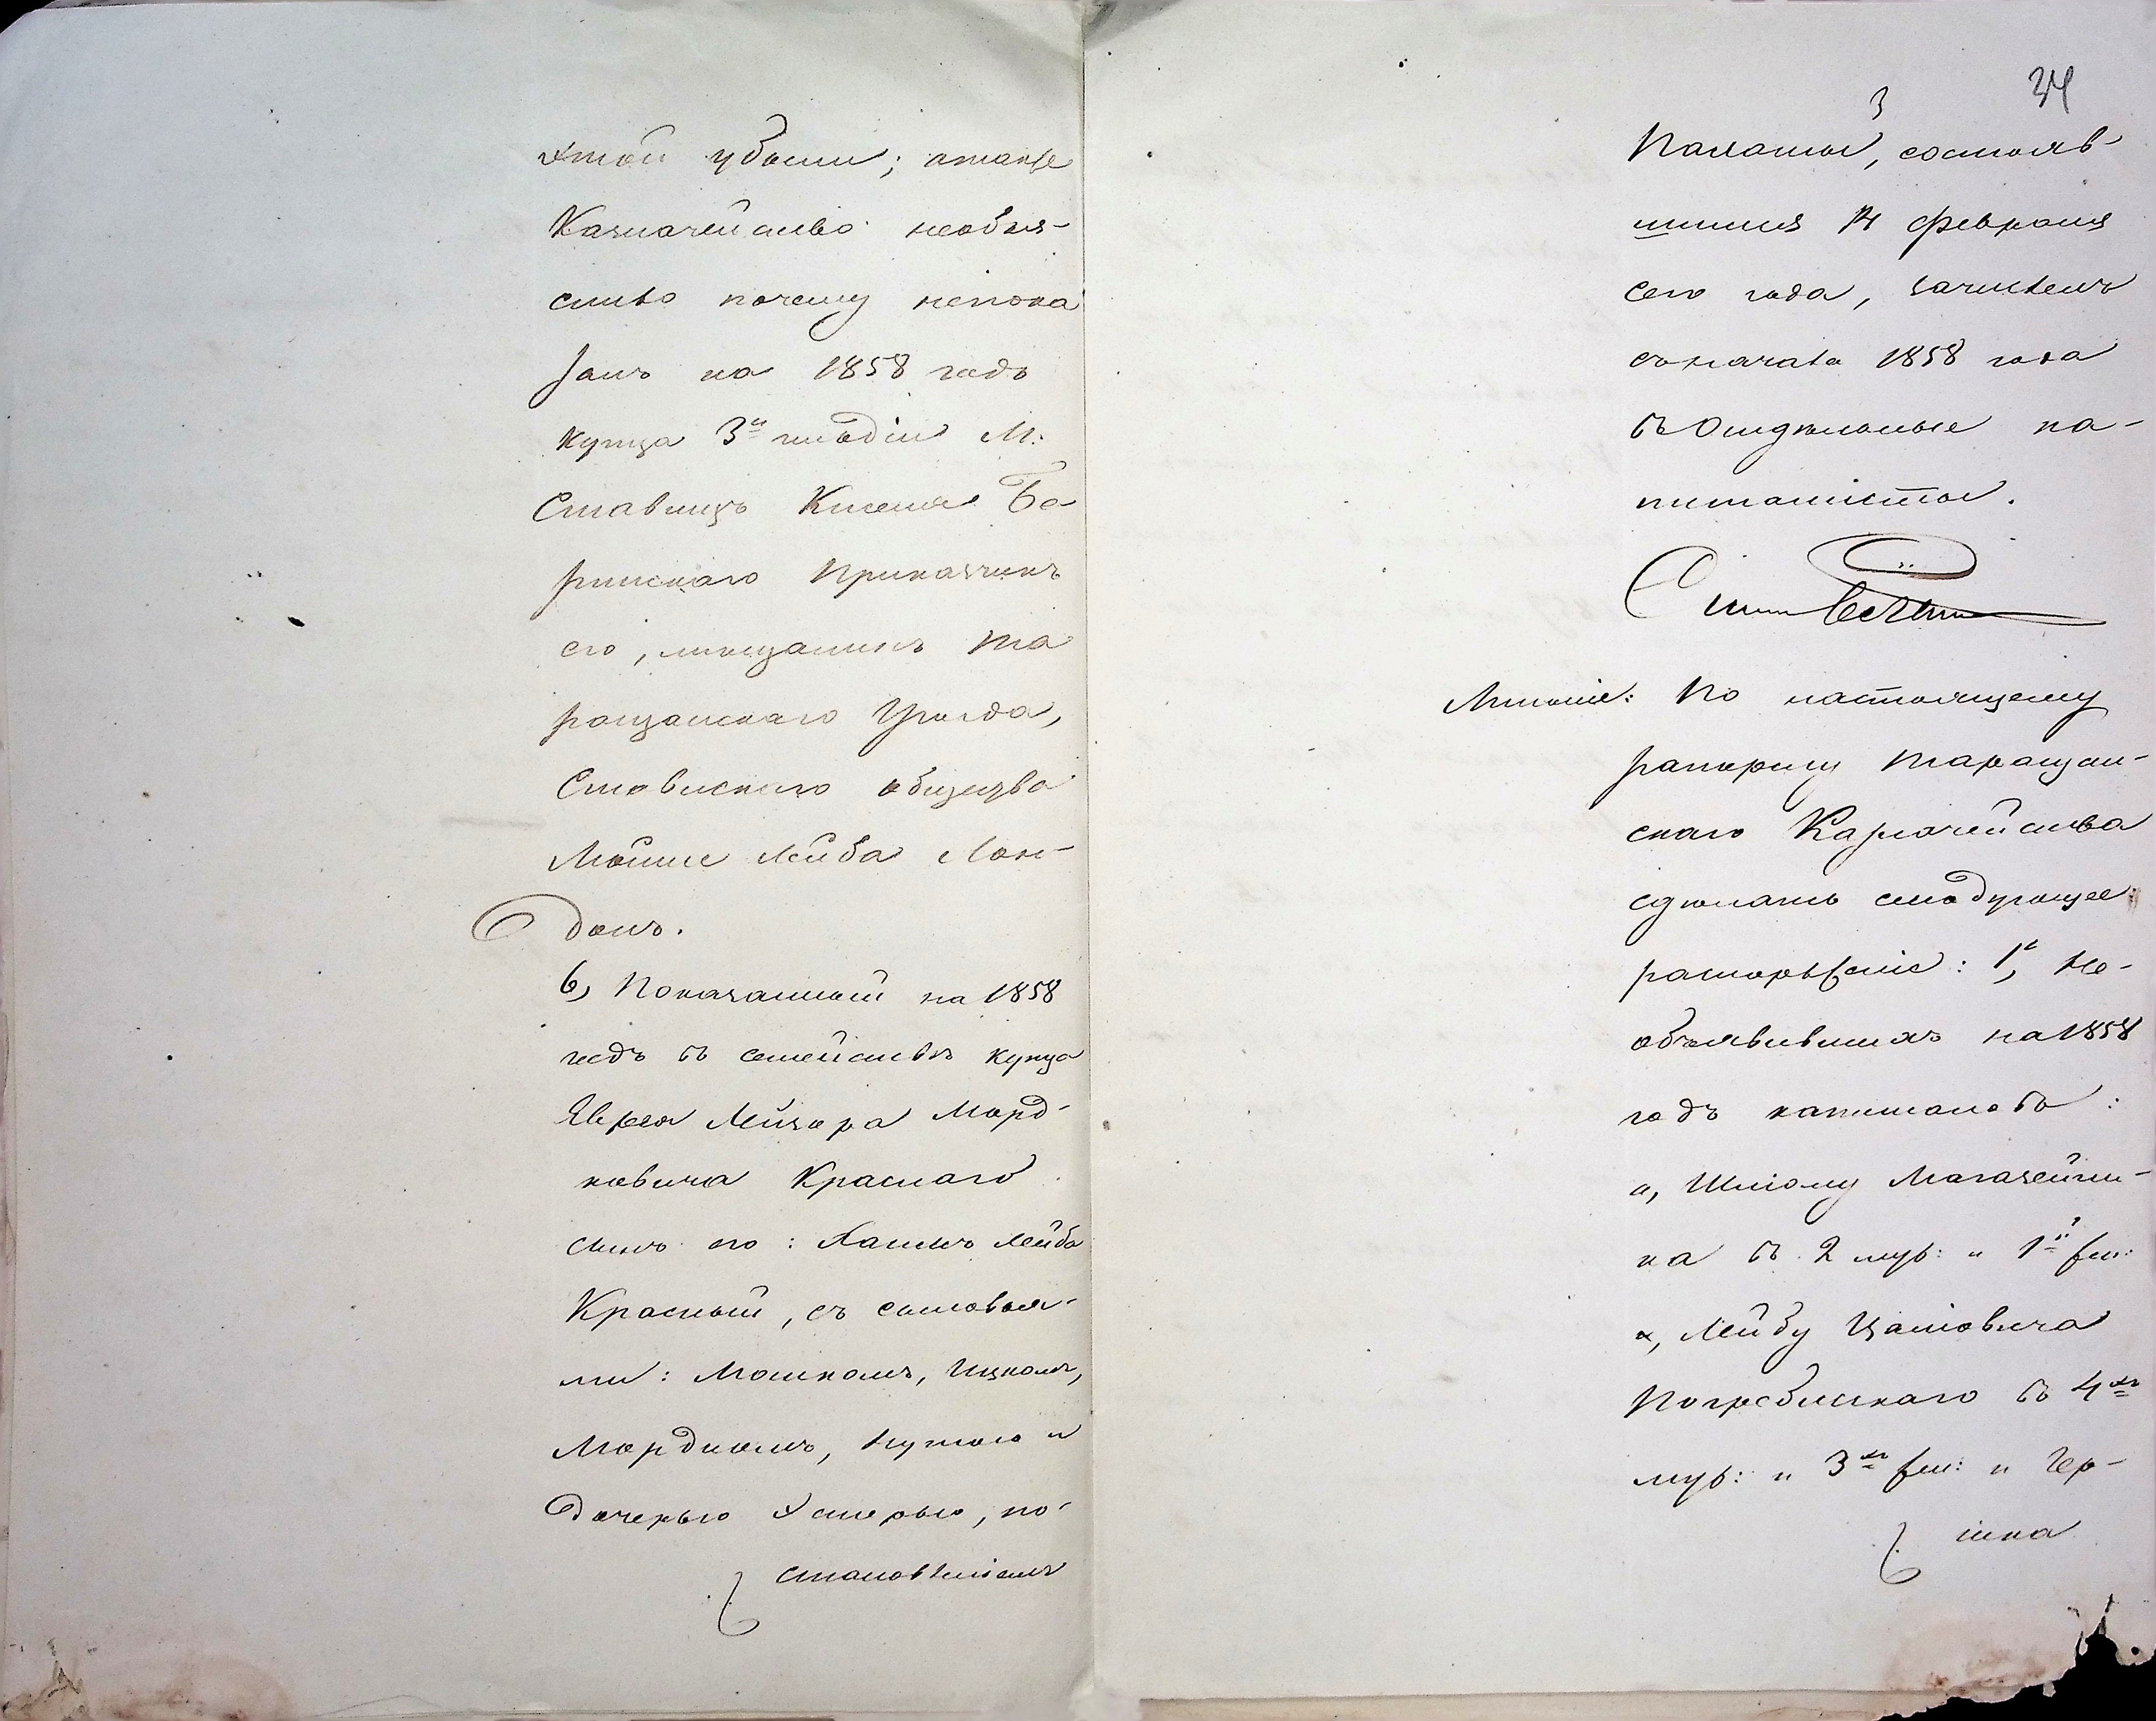 этой убыли; атакже
Казначейство необъя-
снило почему непока
занъ на 1858 годъ
купца 3й гильдіи М:
Ставищъ Кисиля Бе
ринскаго Прикащикъ
его, мещанинъ Та
ращанскаго Уезда,
Ставискаго общества
Мойше Лейба Лон-
донъ.
6, Показанный на 1858
годъ въ семействе купца
Еврея Лейзора Морд-
ковича Краснаго
сынъ его: Хаимъ Лейба
Красный, съ сыновья-
ми: Мошкомъ, Ицкомъ,
Мордкомъ, Нутою и
дочерью Эстерью, по-
становленіемъ
34
3
Палаты, состояв-
шимся 14 февраля
сего года, зачисленъ
съначала 1858 года
въ Отдельные ка-
питалисты.
Мненіе: По настоящему
рапорту Таращан-
скаго Казначейства
сделать следующее
распоряженіе: 1е, Не-
объявившихъ на 1858
годъ капиталовъ:
а, Шлiому Магазейни-
ка въ 2 муж: и 1й жен:
х, Лейбу Цалiовича
Погребискаго въ 4хъ
муж: и 3хъ жен: и Гер-
шка